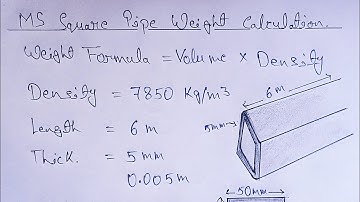 MS Square Pipe Weight Calculation.
Weight Formula = Volume × Density
Density = 7850 Kg/m3
Length = 6 m
Thick. = 5 mm
0.005 m
6 m
5mm
50mm